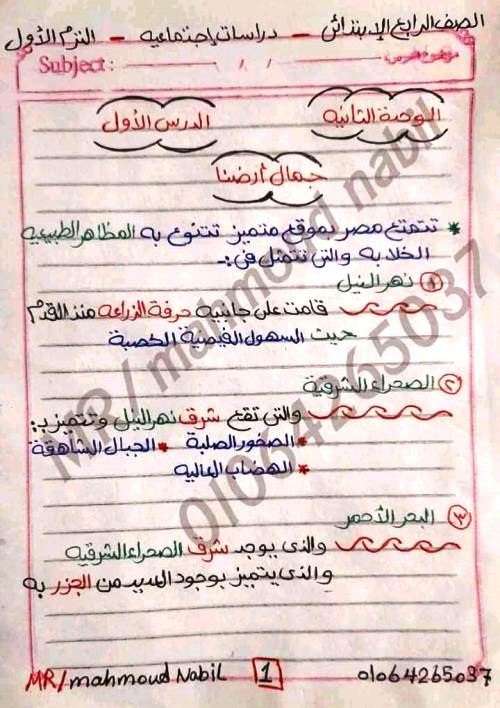 الصف الرابع الإبتدائى - دراسات إجتماعيه - الترم الأول
Subject: / / موضوع الدرس:
الوحدة الثانيه
الدرس الأول
جمال أرضنا
* تتمتع مصر بموقع متميز تتنوع به المظاهر الطبيعيه
الخلابه والتى تتمثل فى :-
١ نهر النيل
قامت على جانبيه حرفة الزراعه منذ القدم
حيث السهول الفيضية الخصبة
٢ الصحراء الشرقية
والتى تقع شرق نهر النيل وتتميز بـ:
* الصخور الصلبة * الجبال الشاهقة
* الهضاب العاليه
٣ البحر الأحمر
والذى يوجد شرق الصحراء الشرقيه
والذى يتميز بوجود العديد من الجزر به
MR/mahmoud Nabil 1 01064265037
MR/mahmoud nabil
01064265037